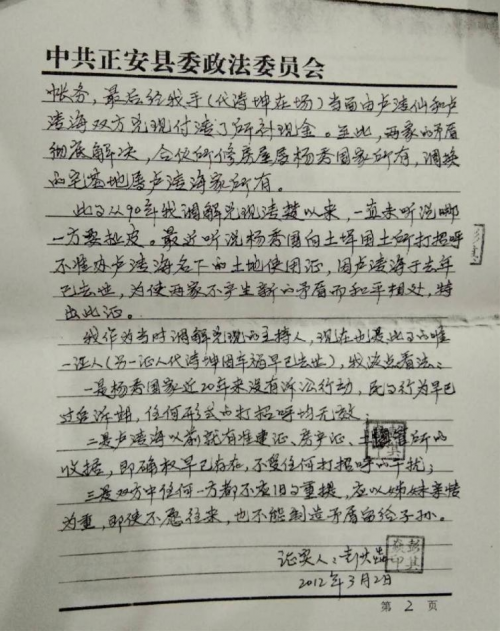 中共正安县委政法委员会
帐务，最后经我手（代涛坤在场）当面由卢清仙和卢
清海双方兑现付清了所补现金。至此，两家的矛盾
彻底解决，合伙所修房屋属杨秀国家所有，调换
的宅基地属卢清海家所有。
此事从90年我调解兑现清楚以来，一直未听说哪
一方要扯皮。最近听说杨秀国向土坪国土所打招呼
不准办卢清海名下的土地使用证，因卢清海于去年
已去世，为使两家不产生新的矛盾而和平相处，特
出此证。
我作为当时调解兑现的主持人，现在也是此事的唯
一证人（另一证人代涛坤因车祸早已去世），我谈点看法：
一是杨秀国家近20年来没有诉讼行动，民事行为早已
过了诉期，任何形式的打招呼均无效；
二是卢清海以前就有准建证、房产证、土管所的
收据，即确权早已存在，不受任何打招呼的干扰；
三是双方中任何一方都不应旧事重提，应以姊妹亲情
为重，即使不愿往来，也不能制造矛盾留给子孙。
证实人：彭
2012年3月2日
第 2 页